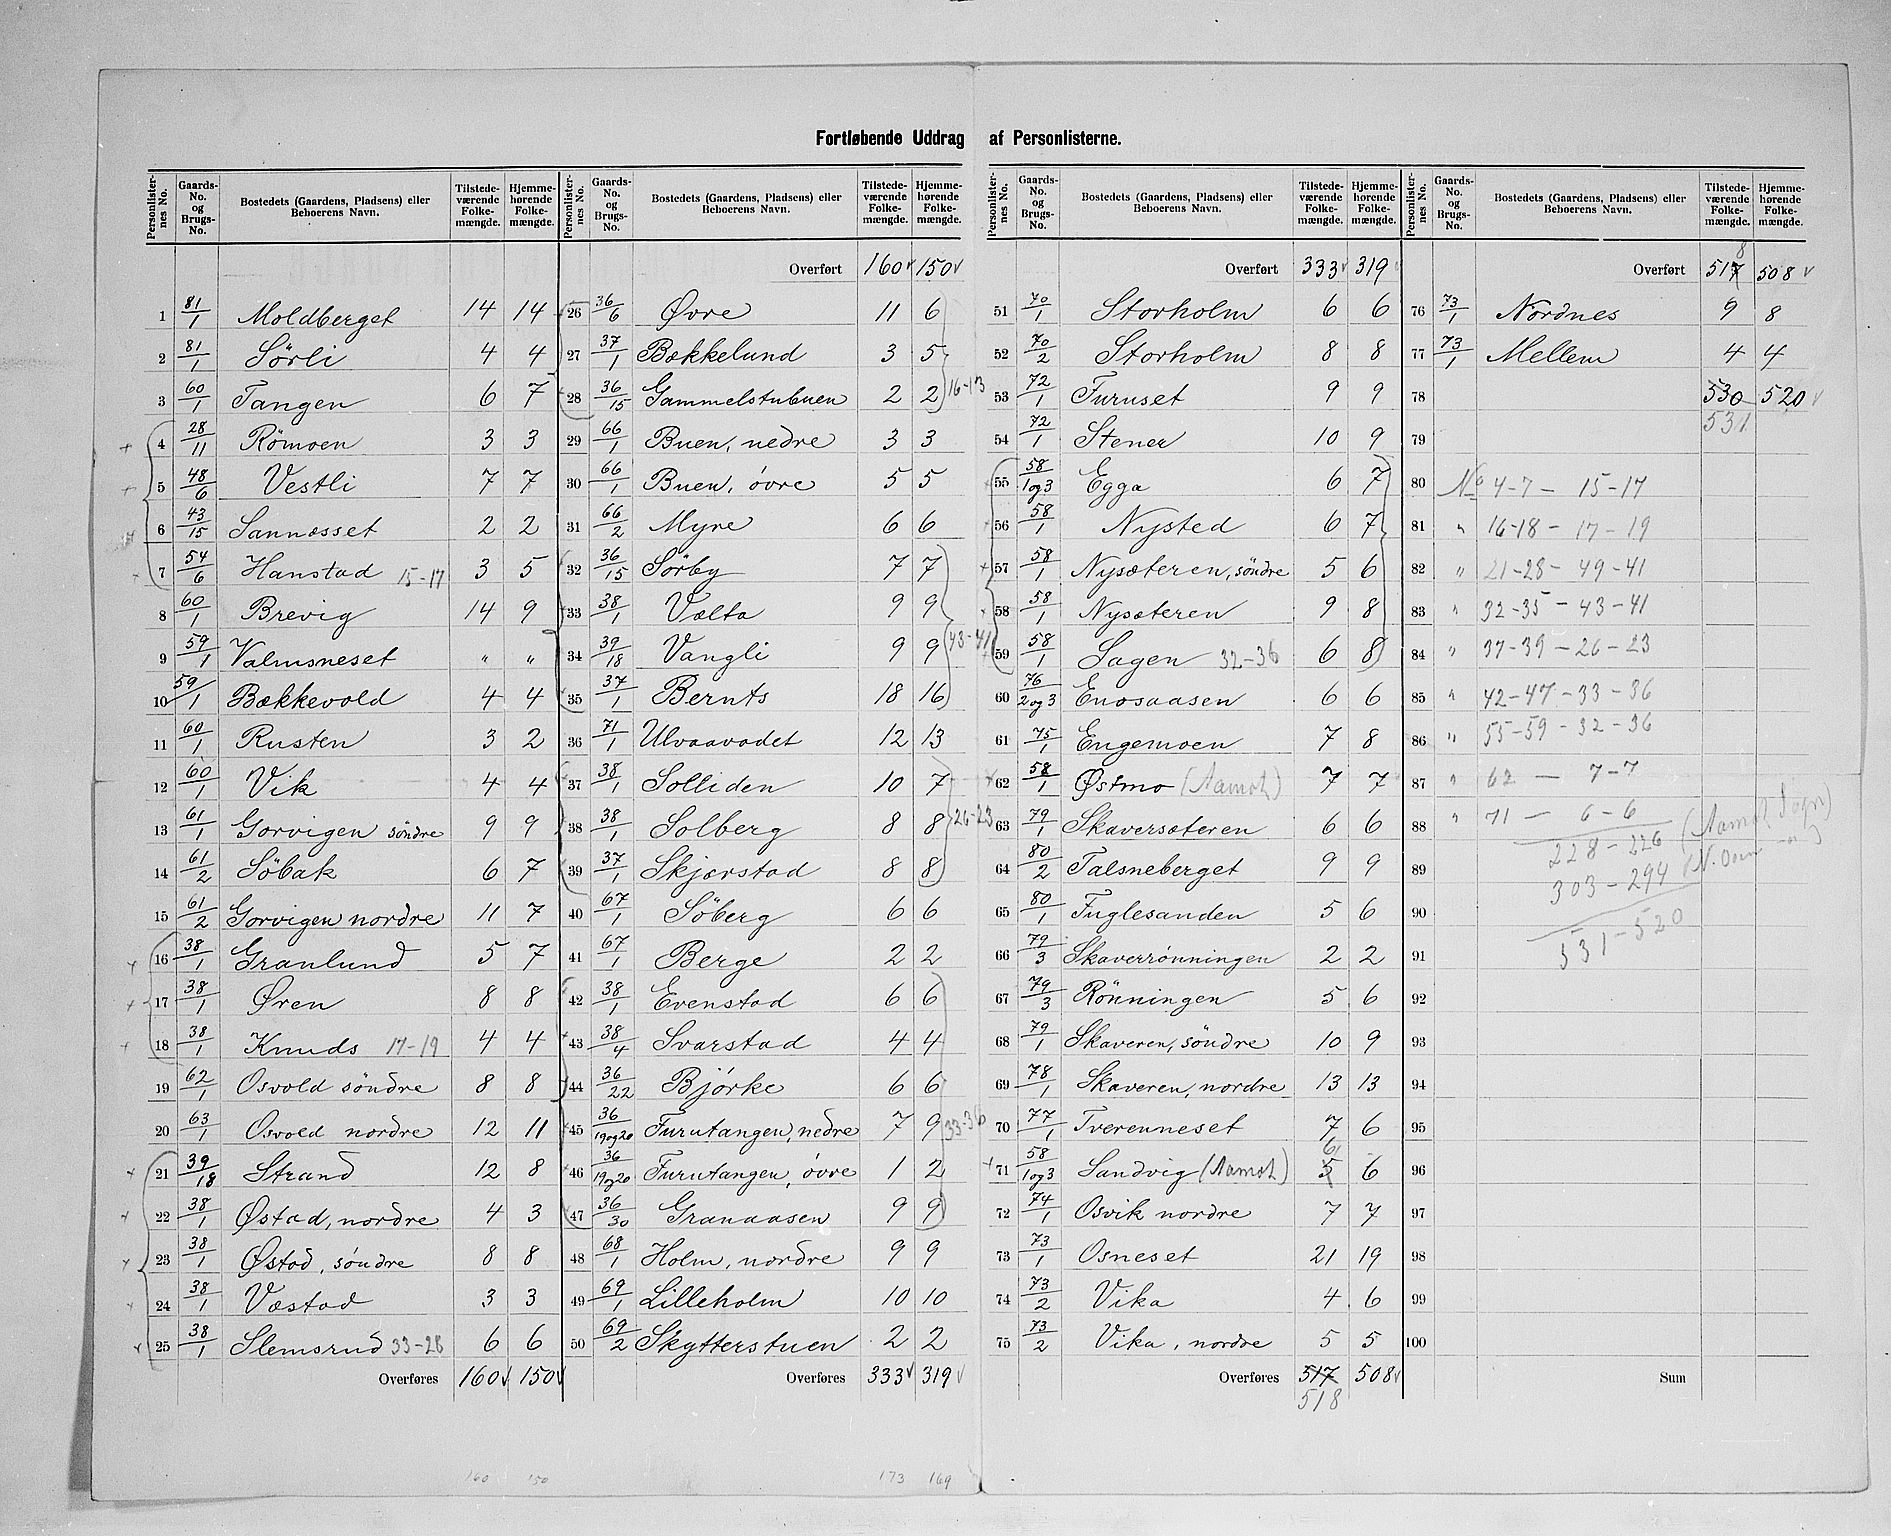 Fortløbende Uddrag af Personlisterne.
Personlister-nes No. | Gaards-No. og Brugs-No. | Bostedets (Gaardens, Pladsens) eller Beboerens Navn. | Tilstede-værende Folke-mængde. | Hjemme-hørende Folke-mængde.
1 81/1 Moldberget 14 14
2 81/1 Sörli 4 4
3 60/1 Tangen 6 7
4 28/11 Römoen 3 3
5 48/6 Vestli 7 7
6 43/15 Sannæsset 2 2
7 54/6 Hanstad 15-17 3 5
8 60/1 Brevig 14 9
9 59/1 Valmsneset " "
10 59/1 Bækkevold 4 4
11 60/1 Rusten 3 2
12 60/1 Vik 4 4
13 61/1 Gorvigen söndre 9 9
14 61/2 Söbak 6 7
15 61/2 Gorvigen nordre 11 7
16 38/1 Granlund 5 7
17 38/1 Øren 8 8
18 38/1 Knuds 17-19 4 4
19 62/1 Osvold söndre 8 8
20 63/1 Osvold nordre 12 11
21 39/18 Strand 12 8
22 38/1 Østad, nordre 4 3
23 38/1 Østad, söndre 8 8
24 38/1 Væstad 3 3
25 38/1 Slemsrud 33-28 6 6
Overføres 160 150
160 150
Personlister-nes No. | Gaards-No. og Brugs-No. | Bostedets (Gaardens, Pladsens) eller Beboerens Navn. | Tilstede-værende Folke-mængde. | Hjemme-hørende Folke-mængde.
Overført 160 150
26 36/6 Øvre 11 6
27 37/1 Bækkelund 3 5
28 36/15 Gammelstubuen 2 2 16-13
29 66/1 Buen, nedre 3 3
30 66/1 Buen, övre 5 5
31 66/2 Myre 6 6
32 36/15 Sörby 7 7
33 38/1 Vælta 9 9
34 39/18 Vangli 9 9 43-41
35 37/1 Bernts 18 16
36 71/1 Ulvaavadet 12 13
37 38/1 Solliden 10 7
38 38/1 Solberg 8 8 26-23
39 37/1 Skjærstad 8 8
40 67/1 Söberg 6 6
41 67/1 Berge 2 2
42 38/1 Evenstad 6 6
43 38/4 Svarstad 4 4
44 36/22 Björke 6 6
45 36/19og20 Furutangen, nedre 7 9 33-36
46 36/19og20 Furutangen, övre 1 2
47 36/30 Granaasen 9 9
48 68/1 Holm, nordre 9 9
49 69/1 Lilleholm 10 10
50 69/2 Skytterstuen 2 2
Overføres 333 319
173 169
Personlister-nes No. | Gaards-No. og Brugs-No. | Bostedets (Gaardens, Pladsens) eller Beboerens Navn. | Tilstede-værende Folke-mængde. | Hjemme-hørende Folke-mængde.
Overført 333 319
51 70/1 Storholm 6 6
52 70/2 Storholm 8 8
53 72/1 Furuset 9 9
54 72/1 Stener 10 9
55 58/1og3 Egga 6 7
56 58/1 Nysted 6 7
57 58/1 Nysæteren, söndre 5 6
58 58/1 Nysæteren 9 8
59 58/1 Sagen 32-36 6 8
60 76/2og3 Enosaasen 6 6
61 75/1 Engemoen 7 8
62 58/1 Østmo (Aamot) 7 7
63 79/1 Skaversæteren 6 6
64 80/2 Talsneberget 9 9
65 80/1 Fuglesanden 5 6
66 79/3 Skaverrönningen 2 2
67 79/3 Rönningen 5 6
68 79/1 Skaveren, söndre 10 9
69 78/1 Skaveren, nordre 13 13
70 77/1 Tverenneset 7 6
71 58/1og3 Sandvig (Aamot) 5 6 6
72 74/1 Osvik nordre 7 7
73 73/1 Osneset 21 19
74 73/2 Vika 4 6
75 73/2 Vika, nordre 5 5
Overføres 517 508
518
Personlister-nes No. | Gaards-No. og Brugs-No. | Bostedets (Gaardens, Pladsens) eller Beboerens Navn. | Tilstede-værende Folke-mængde. | Hjemme-hørende Folke-mængde.
8
Overført 517 508
76 73/1 Nordnes 9 8
77 73/1 Mellem 4 4
78 530 520
79 531
80 No 4-7 - 15-17
81 " 16-18 - 17-19
82 " 21-28 - 49-41
83 " 32-35 - 43-41
84 " 37-39 - 26-23
85 " 42-47 - 33-36
86 " 55-59 - 32-36
87 " 62 - 7-7
88 " 71 - 6-6
228-226 (Aamot Sogn)
89 303-294
90
531-520
91
92
93
94
95
96
97
98
99
100
Sum